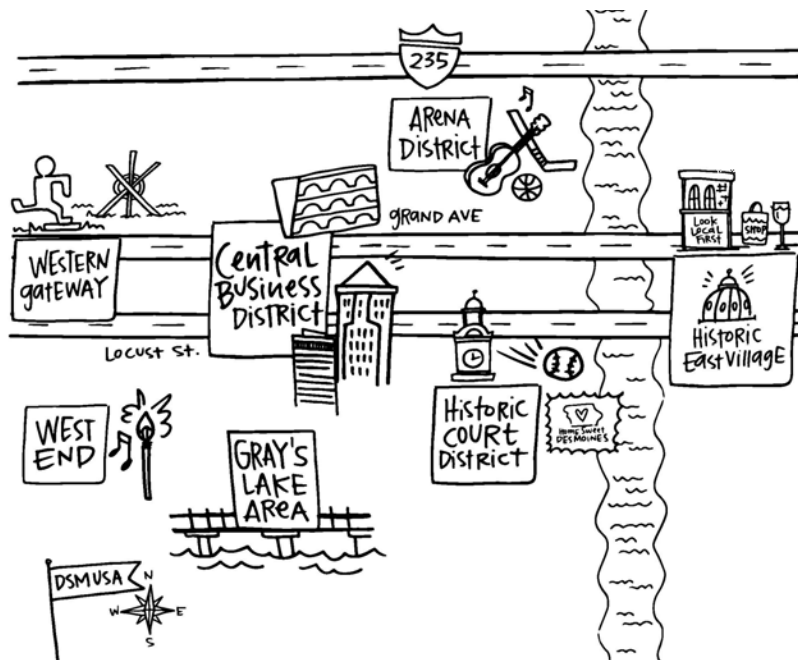 235
ARENA
DISTRICT
GRAND AVE
LOOK
LOCAL
FIRST
SHOP
WESTERN
gateway
Central
Business
District
Historic
East Village
Locust St.
WEST
END
GRAY'S
LAKE
AREA
Historic
COURT
District
Home Sweet
DES MOINES
DSM USA
N
W
E
S